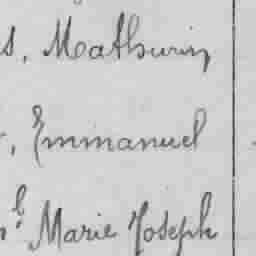 s, Mathurin
, Emmanuel
l Marie Joseph